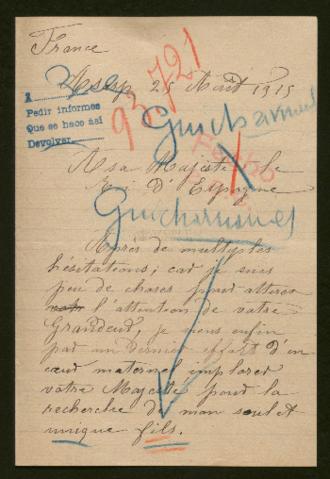 France
93721
25 Août 1915
A
Pedir informes
Que se hace así
Devolver
A sa Majesté le
Roi D'Espagne
Après de multiples
hésitations; car je suis
peu de choses pour attirer
l'attention de votre
Grandeur, je viens enfin
par un dernier effort d'un
cœur maternel implorer
votre Majesté pour la
recherche de mon seul et
unique fils.